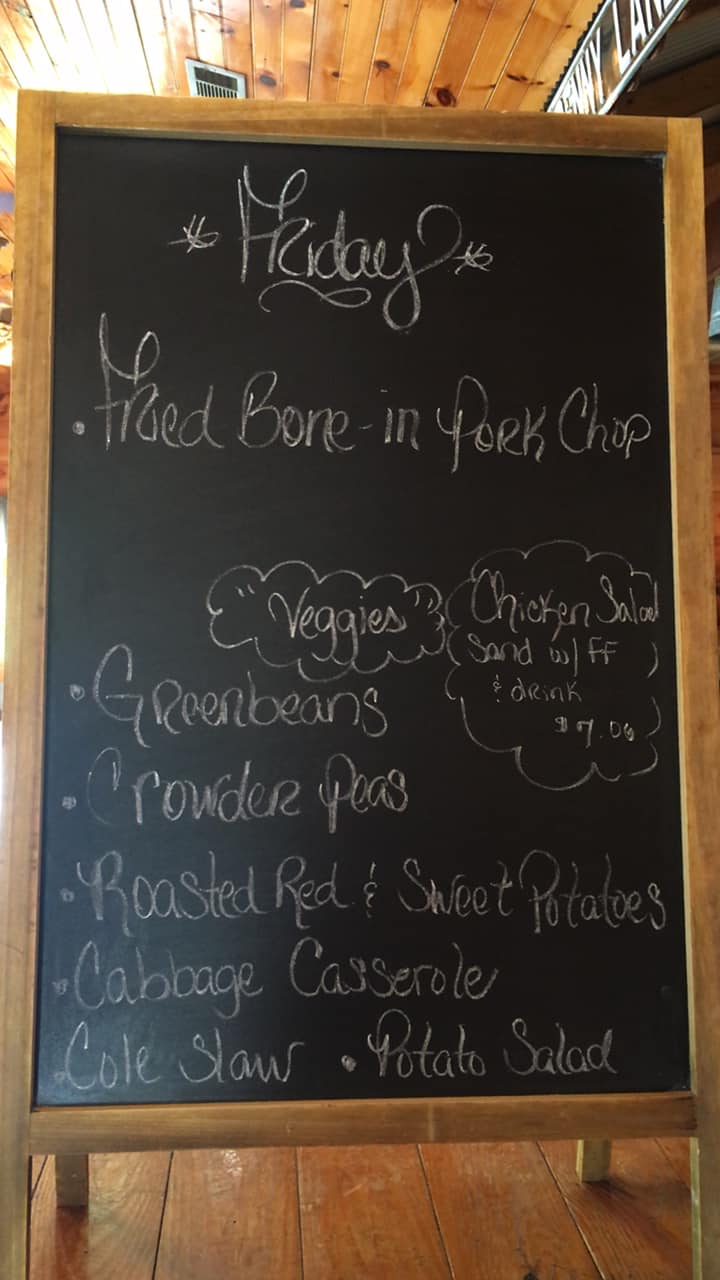 ENNY LAN
* Friday *
• Fried Bone-in Pork Chop
"Veggies"
Chicken Salad
Sand w/ FF
& drink
$7.00
• Greenbeans
• Crowder Peas
• Roasted Red & Sweet Potatoes
• Cabbage Casserole
• Cole Slaw • Potato Salad